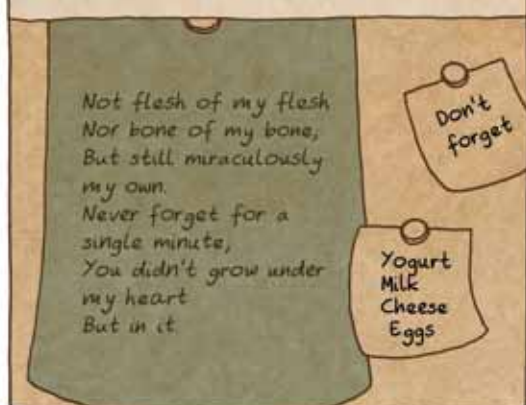 Not flesh of my flesh
Nor bone of my bone,
But still miraculously
my own.
Never forget for a
single minute,
You didn't grow under
my heart
But in it
Don't
forget
Yogurt
Milk
Cheese
Eggs